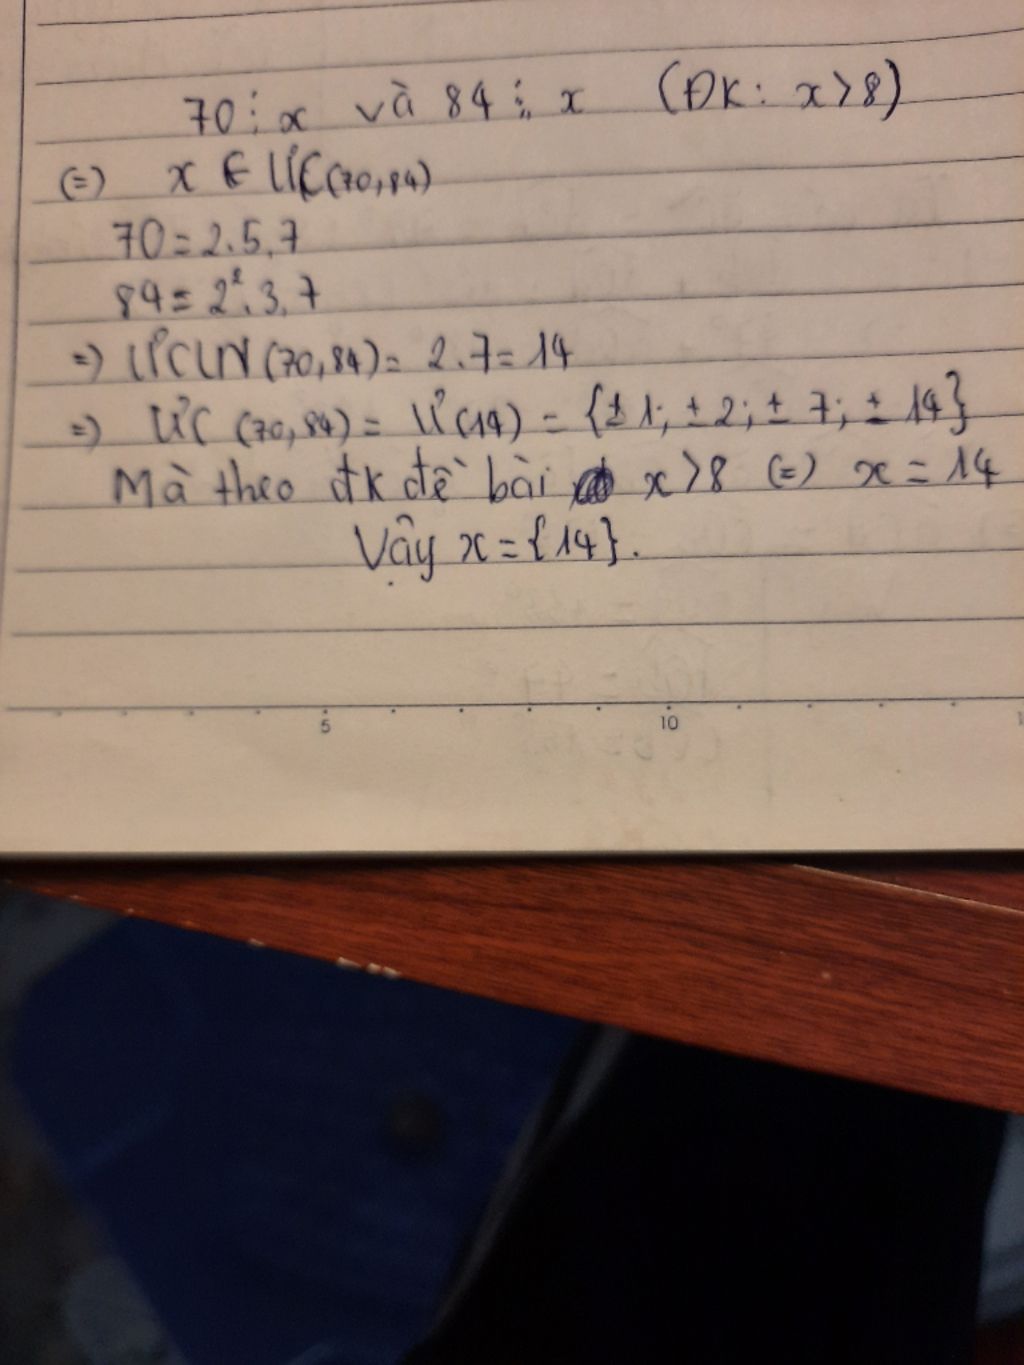 70 ⋮ x và 84 ⋮ x (ĐK: x>8)
(=) x ∈ ƯC(70,84)
70=2.5.7
84=2².3.7
=) ƯCLN(70,84)=2.7=14
=) ƯC (70,84)= Ư(14) = {±1;±2;±7;±14}
Mà theo đk đề bài x>8 (=) x=14
Vậy x={14}.
5 10